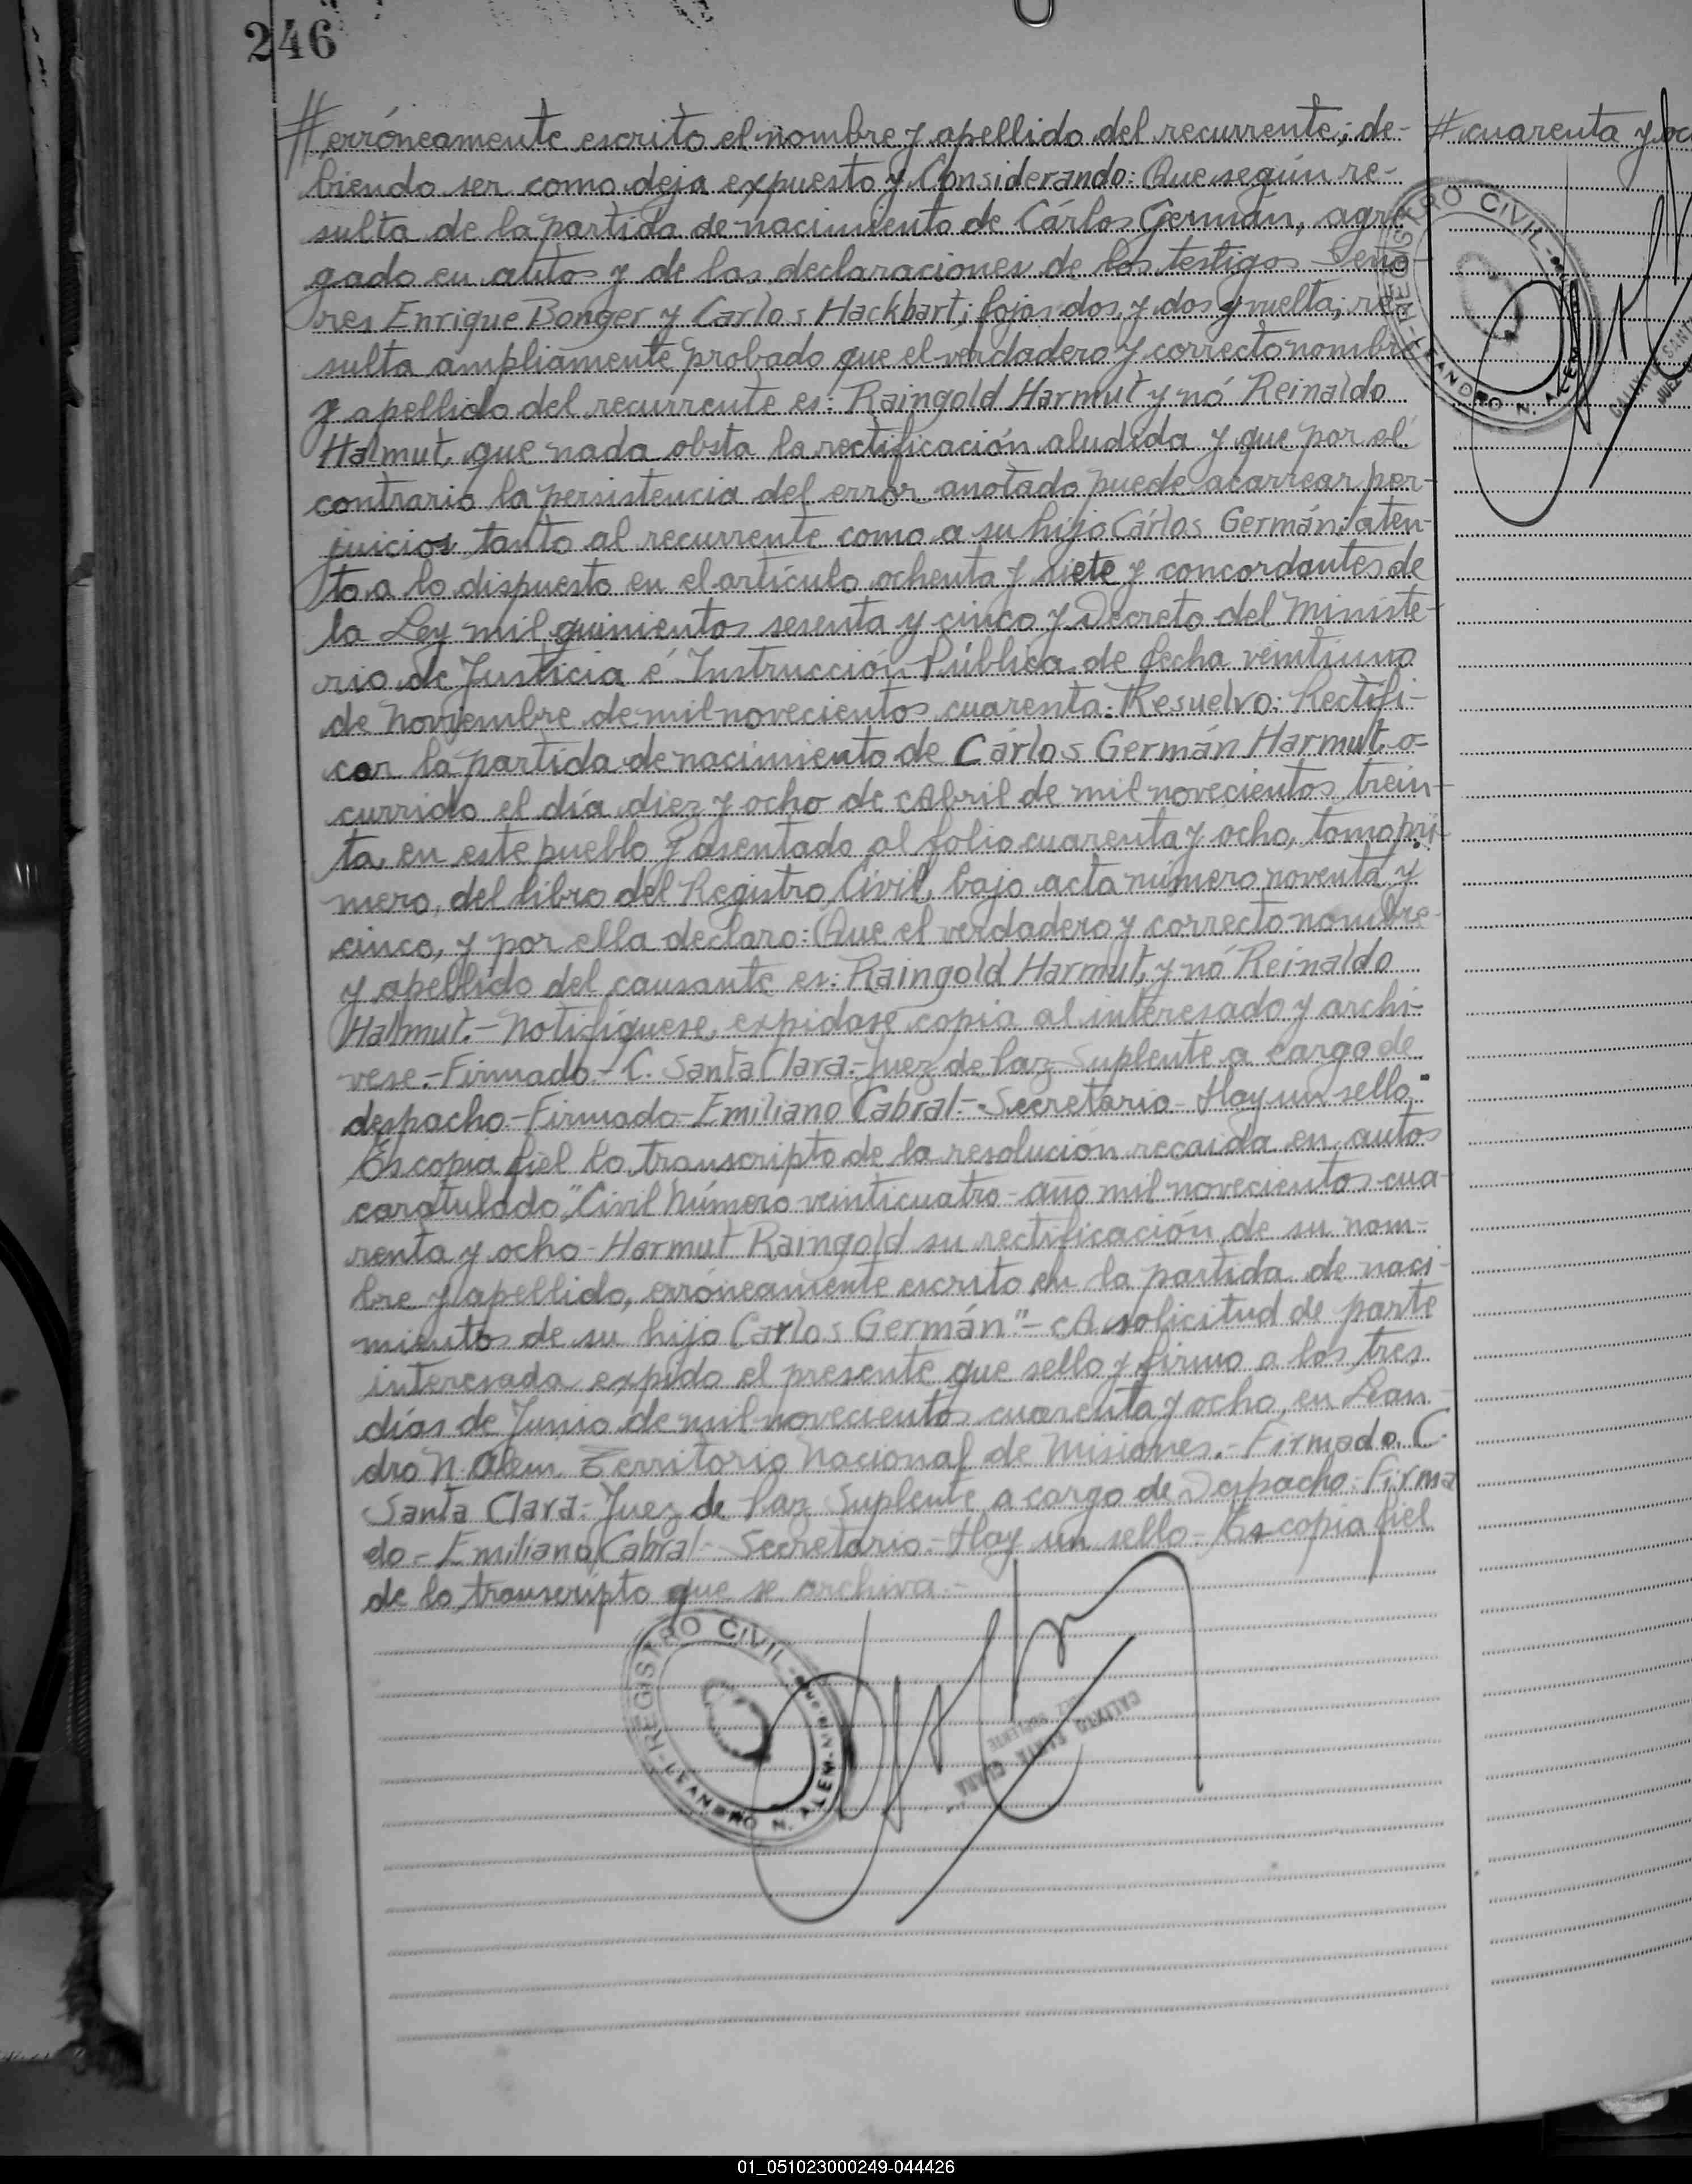 246
# erróneamente escrito el nombre y apellido del recurrente; de-
biendo ser como deja expuesto y Considerando: Que según re-
sulta de la partida de nacimiento de Cárlos Germán, agre-
gado en autos y de las declaraciones de los testigos Seño-
res Enrique Bonger y Carlos Hackbart; fojas dos y dos y vuelta; re-
sulta ampliamente probado que el verdadero y correcto nombre
y apellido del recurrente es: Raingold Harmut y nó Reinaldo
Halmut, que nada obsta la rectificación aludida y que por el
contrario la persistencia del error anotado puede acarrear per-
juicios tanto al recurrente como a su hijo Cárlos Germán; aten-
to a lo dispuesto en el artículo ochenta y siete y concordantes de
la Ley mil quinientos sesenta y cinco y Decreto del Ministe-
rio de Justicia é Instrucción Pública de fecha veintiuno
de Noviembre de mil novecientos cuarenta: Resuelvo: Rectifi-
car la partida de nacimiento de Cárlos Germán Harmut, o-
currido el día diez y ocho de Abril de mil novecientos trein-
ta, en este pueblo y asentado al folio cuarenta y ocho, tomo pri-
mero, del libro del Registro Civil, bajo acta número noventa y
cinco, y por ella declaro: Que el verdadero y correcto nombre
y apellido del causante es: Raingold Harmut, y nó Reinaldo
Halmut.- Notifíquese, expídase copia al interesado y archí-
vese.- Firmado.- C. Santa Clara.- Juez de Paz Suplente a cargo de
despacho - Firmado - Emiliano Cabral.- Secretario - Hay un sello.-
Es copia fiel lo transcripto de la resolución recaida en autos
caratulado "Civil Número veinticuatro - año mil novecientos cua-
renta y ocho - Harmut Raingold su rectificación de su nom-
bre y apellido, erróneamente escrito en la partida de naci-
miento de su hijo Carlos Germán".- A solicitud de parte
interesada expido el presente que sello y firmo a los tres
días de Junio de mil novecientos cuarenta y ocho, en Lean-
dro N. Alem Territorio Nacional de Misiones.- Firmado. C.
Santa Clara.- Juez de Paz Suplente a cargo de Despacho - Firma
do - Emiliano Cabral - Secretario.- Hay un sello.- Es copia fiel
de lo transcripto que se archiva.-
REGISTRO CIVIL
LEANDRO N. ALEM
CALIXTO SANTA CLARA
JUEZ SUPLENTE
# cuarenta y oc
REGISTRO CIVIL
LEANDRO N. ALEM
CALIXTO SANT
JUEZ
01_051023000249-044426